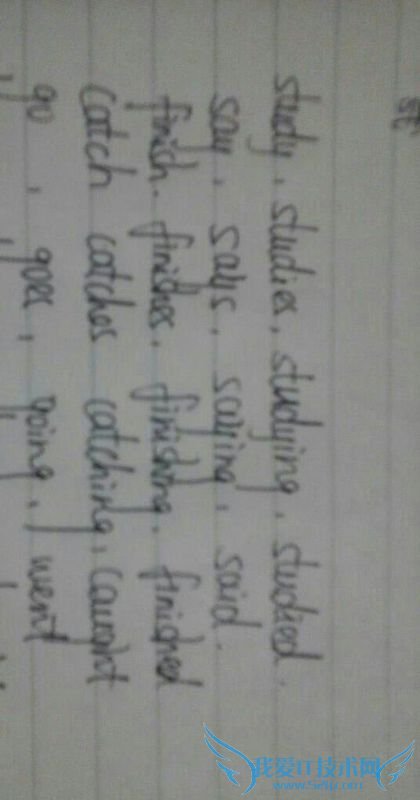 study, studies, studying, studied.
say, says, saying, said.
finish, finishes, finishing, finished
catch catches catching, caught
go, goes, going, went
我爱IT技术网
www.52ij.com